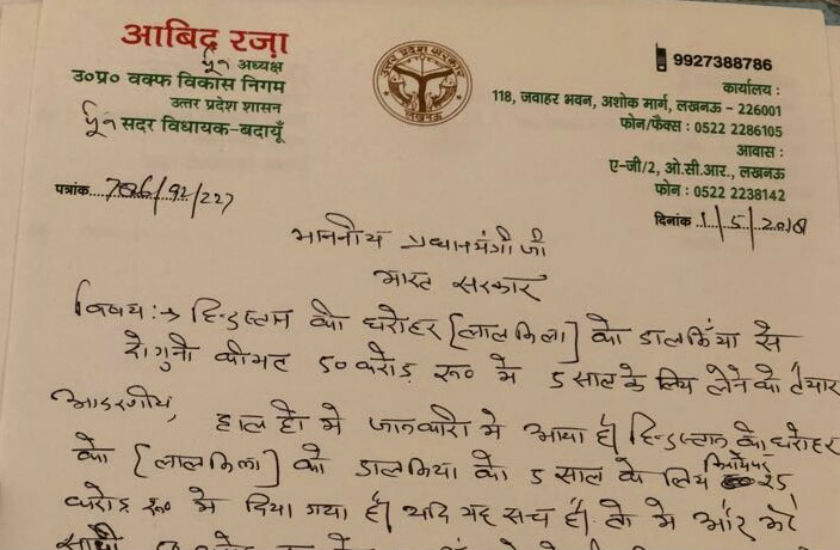 आबिद रज़ा
पूर्व अध्यक्ष
उ०प्र० वक्फ विकास निगम
उत्तर प्रदेश शासन
पूर्व सदर विधायक-बदायूँ
पत्रांक....786/92/227
उत्तर प्रदेश सरकार
लखनऊ
9927388786
कार्यालय :
118, जवाहर भवन, अशोक मार्ग, लखनऊ - 226001
फोन/फैक्स : 0522 2286105
आवास :
ए-जी/2, ओ.सी.आर., लखनऊ
फोन : 0522 2238142
दिनांक ..1/5/2018
माननीय प्रधानमंत्री जी
भारत सरकार
विषय :→ हिन्दुस्तान की धरोहर [लाल किला] को डालमिया से
दो गुनी कीमत 50 करोड़ रू० मे 5 साल के लिए लेने को तैयार
आदरणीय,
हाल ही मे जानकारी मे आया है। हिन्दुस्तान की धरोहर
को [लाल किला] को डालमिया को 5 साल के लिए किराये पर 25
करोड़ रू० मे दिया गया है। यदि यह सच है। तो मे और मेरे
साथी 50 करोड़